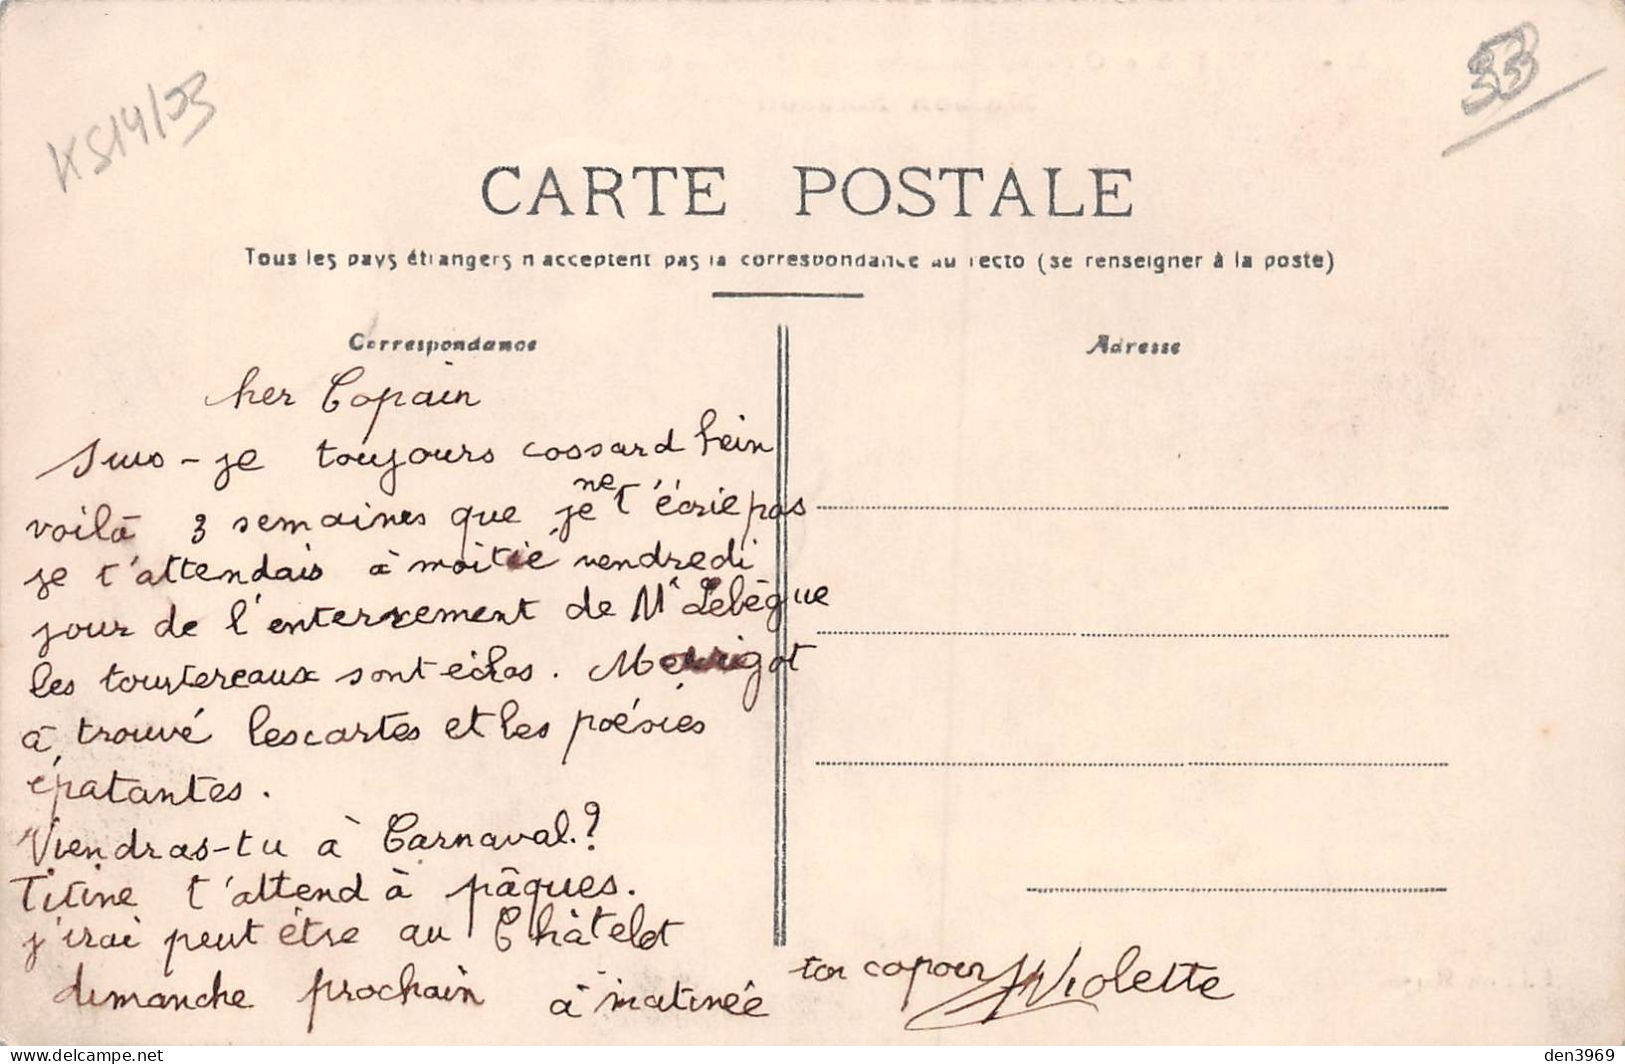 KS14/23
33
CARTE POSTALE
Tous les pays étrangers n'acceptent pas la correspondance au recto (se renseigner à la poste)
Correspondance
Adresse
Cher Copain
Suis-je toujours cossard hein
voilà 3 semaines que je ne t'écrie pas
je t'attendais à moitié vendredi
jour de l'enterrement de Mr Lebègue
les tourtereaux sont éclos. Mérigot
à trouvé les cartes et les poésies
épatantes.
Viendras-tu à Carnaval.?
Titine t'attend à pâques.
j'irai peut être au Châtelet
dimanche prochain à matinée
ton copain Violette
den3969